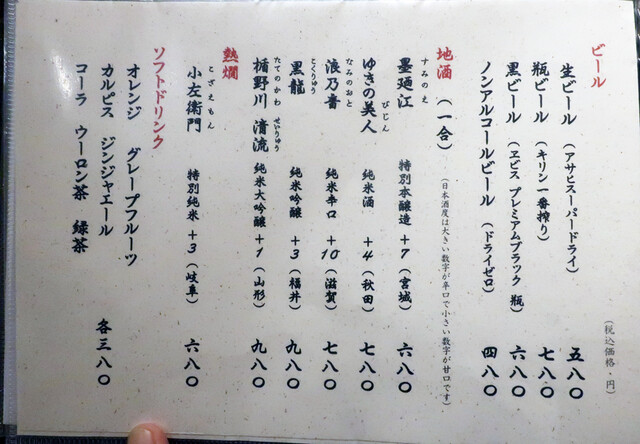 ビール
(税込価格・円)
生ビール (アサヒスーパードライ) 五八〇
瓶ビール (キリン一番搾り) 七八〇
黒ビール (ヱビス プレミアムブラック 瓶) 六八〇
ノンアルコールビール (ドライゼロ) 四八〇
地酒 (一合) (日本酒度は大きい数字が辛口で小さい数字が甘口です)
すみのえ
墨廼江 特別本醸造 +7 (宮城) 六八〇
びじん
ゆきの美人 純米酒 +4 (秋田) 七八〇
なみのおと
浪乃音 純米辛口 +10 (滋賀) 七八〇
こくりゅう
黒龍 純米吟醸 +3 (福井) 九八〇
たてのかわ せいりゅう
楯野川 清流 純米大吟醸 +1 (山形) 九八〇
熱燗
こざえもん
小左衛門 特別純米 +3 (岐阜) 六八〇
ソフトドリンク
オレンジ グレープフルーツ
カルピス ジンジャエール 各三八〇
コーラ ウーロン茶 緑茶